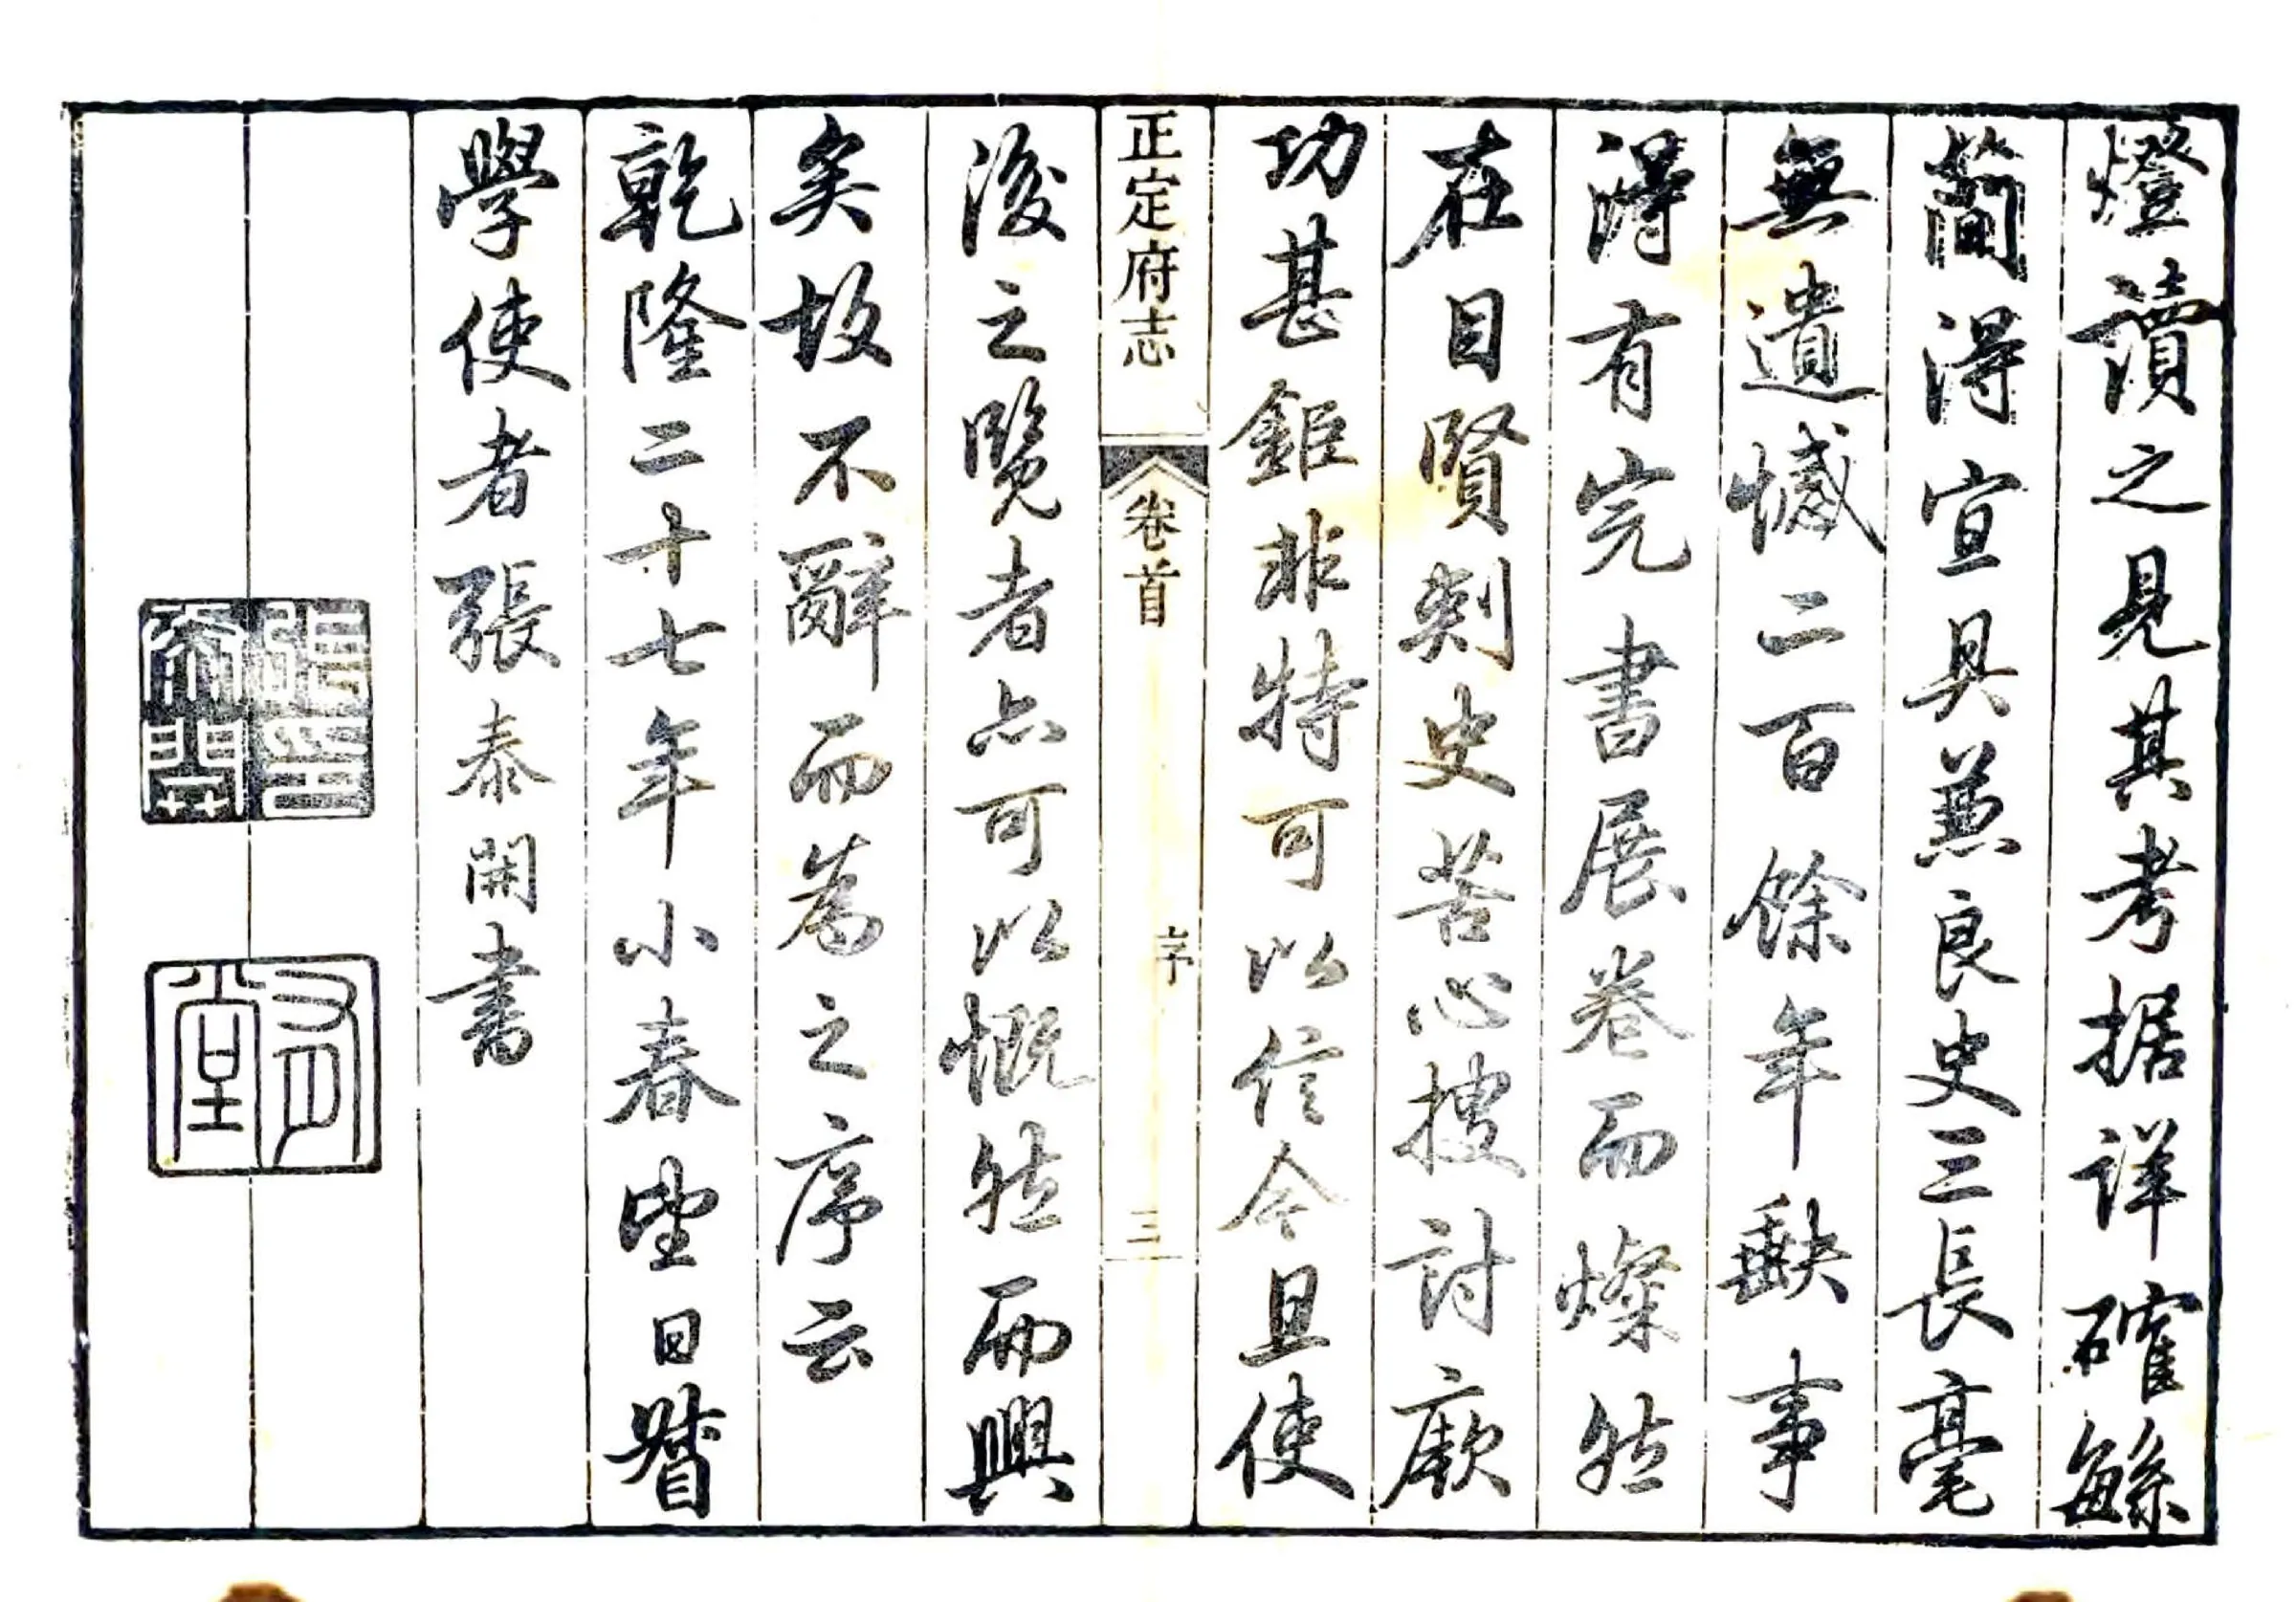 燈讀之見其考据詳確緐
簡得宜具兼良史三長毫
無遺憾二百餘年缺事
得有完書展卷而燦然
在目賢刺史苦心搜討厥
功甚鉅非特可以信今且使
正定府志 卷首 序 三
後之覽者亦可以慨然而興
矣故不辭而為之序云
乾隆二十七年小春望日督
學使者張泰開書
張印泰開
堂